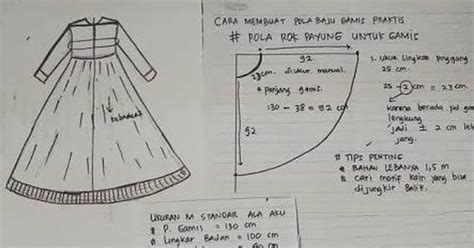 CARA MEMBUAT POLA BAJU GAMIS PRAKTIS
# POLA ROK PAYUNG UNTUK GAMIS
92
23 cm. diukur manual.
* panjang gamis.
130 - 38 = 92 cm
92
1. Ukur lingkar pinggang
25 cm.
25 - 2 cm = 23 cm
karena berada pd ga
lengkung
jadi ± 2 cm leb
jang.
# TIPS PENTING
* BAHAN LEBARNYA 1,5 m
* Cari motif kain yang bisa
dijungkir balik.
UKURAN M STANDAR ALA AKU
# P. Gamis = 130 cm
# Lingkar Badan = 100 cm
= 90 cm